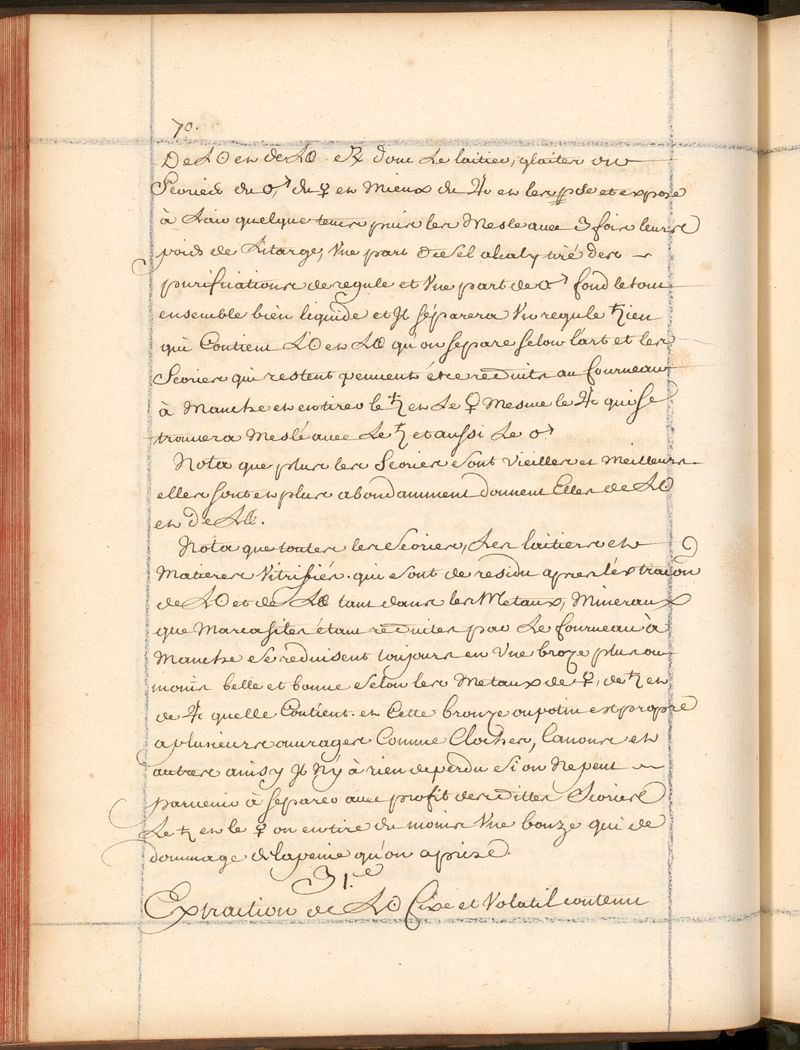 70.
De L☉ et de L☾. ℞ donc Le laitier, glaiter ou
Scories du ♂, du ♀ et Mieux du ♃ et les expose
à Lair quelque tems puis les Mesle avec 3 fois leurs
poids de Litarge, Vne part de sel alcaly tiré des
purifications de regule et Vne part de ♂ fond letout
ensemble bien liquide et Jl séparera Vn regule ♄ien
qui Contient L☉ et L☾ qu'on separe selon l'art et les
Scories qui restent peuvent étre reduits au fourneau
à Manche et entirer le ♄ et Le ♀ Mesme le ♃ qui se
trouvera Meslé avec Le ♄ et aussi Le ♂
Nota que plus les Scories sont vieilles et Meilleurs
elles sont et plus abondamment donnent Elles de L☉
et de L☾.
Nota que toutes les Scories, Les laitiers et
Matieres Vitrifiés. qui sont de residu apres l'extraction
de L☉ et de L☾ tant dans les Metaux, Mineraux
que Marcasites étant reduites par Le fourneau à
Manche se reduisent toujours en Vne bronze plus ou
moins belle et bonne selon les Metaux de ♀, de ♄ et
de ♃ quelle Contient. et Cette bronze ou potin est propre
a plusieurs ouvrages Comme Cloches, Canons et
autres ainsy Jl N'y à rien de perdu si on Ne peut
parvenir à separer avec profit des dittes Scories
Le ♄ et le ♀ on en tire du moins Vne bonze qui de
dommage de la peine qu'on a prise.
31.e
Extraction de L☉ fixe et Volatil contenu